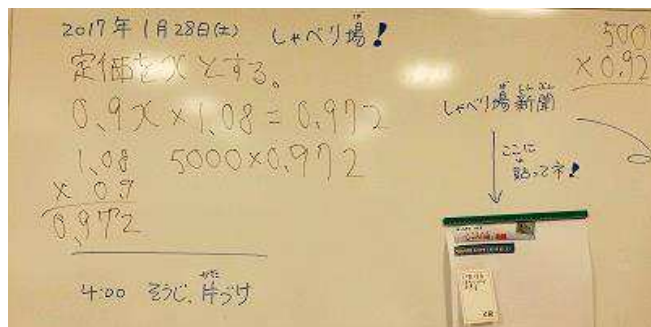 2017年1月28日(土) しゃべり場!
定価をxとする。
0.9x×1.08=0.972
1.08
× 0.9
0.972
5000×0.972
4:00 そうじ、片づけ
500
×0.92
しゃべり場新聞
ここに
貼ってネ!